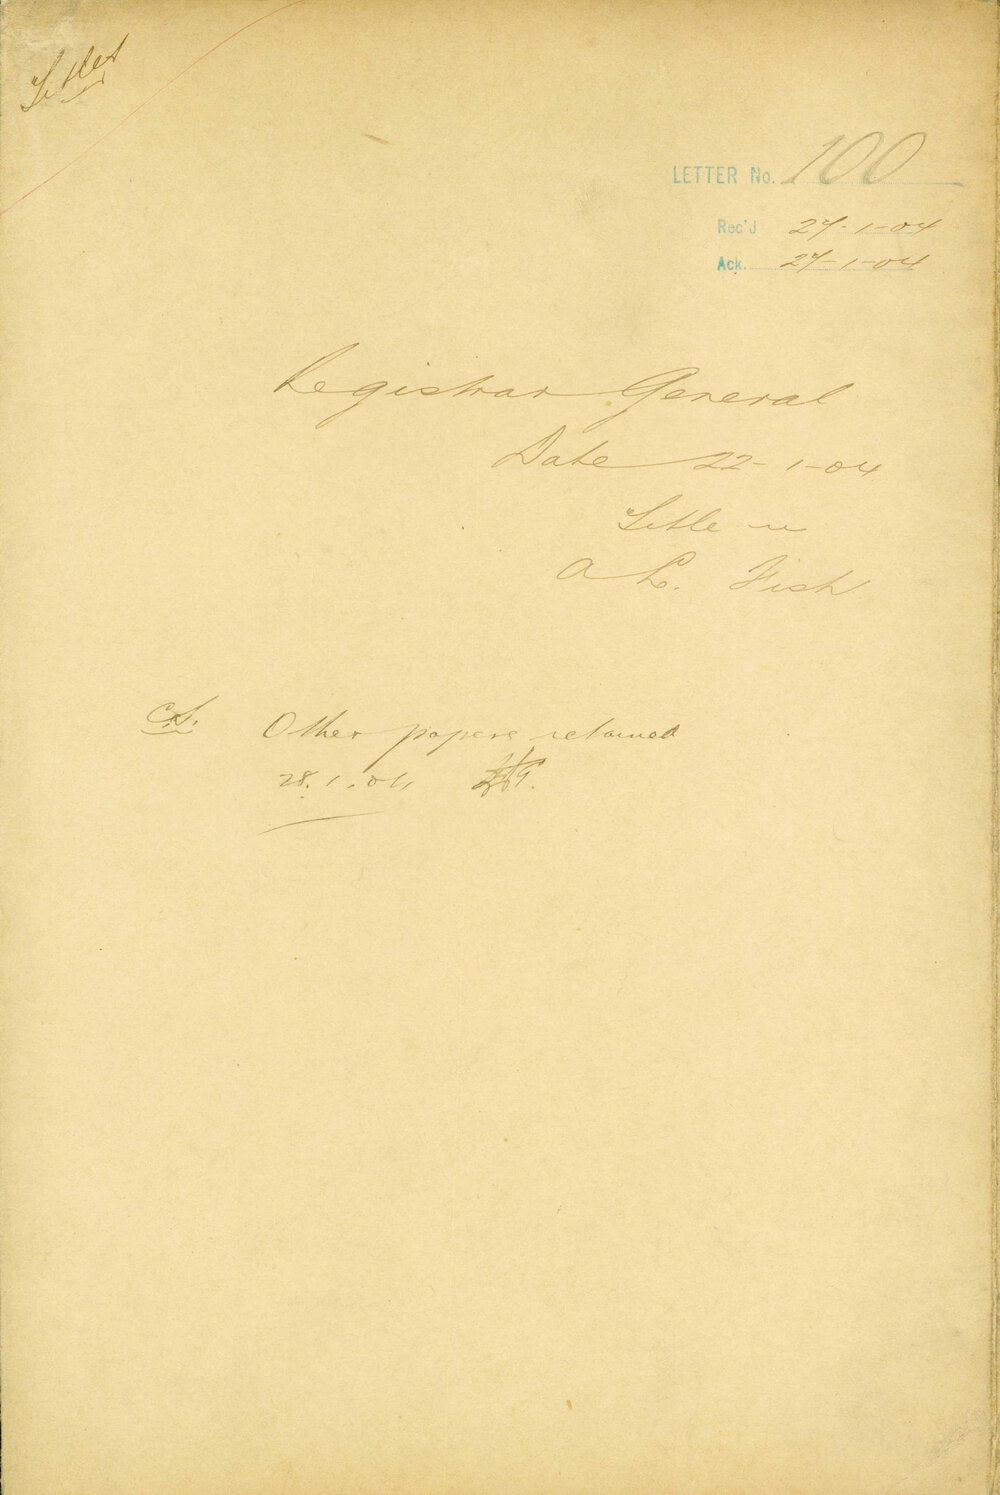 Titles
LETTER No. 100
Rec'd 27-1-04
Ack. 27-1-04
Registrar General
Date 22-1-04
Title in
A L. Fish
Other papers retained
28.1.04